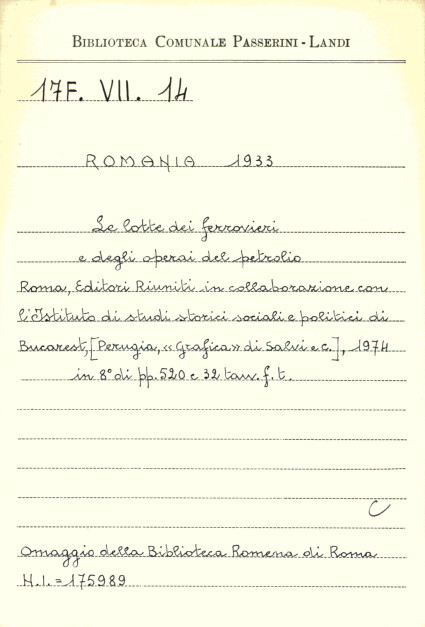 BIBLIOTECA COMUNALE PASSERINI - LANDI
17F. VII. 14
ROMANIA 1933
Le lotte dei ferrovieri
e degli operai del petrolio
Roma, Editori Riuniti in collaborazione con
l'Istituto di studi storici sociali e politici di
Bucarest, [Perugia, «Grafica» di Salvi e c.], 1974
in 8° di pp. 520 e 32 tav. f. t.
C
Omaggio della Biblioteca Romena di Roma
N.I. = 175989